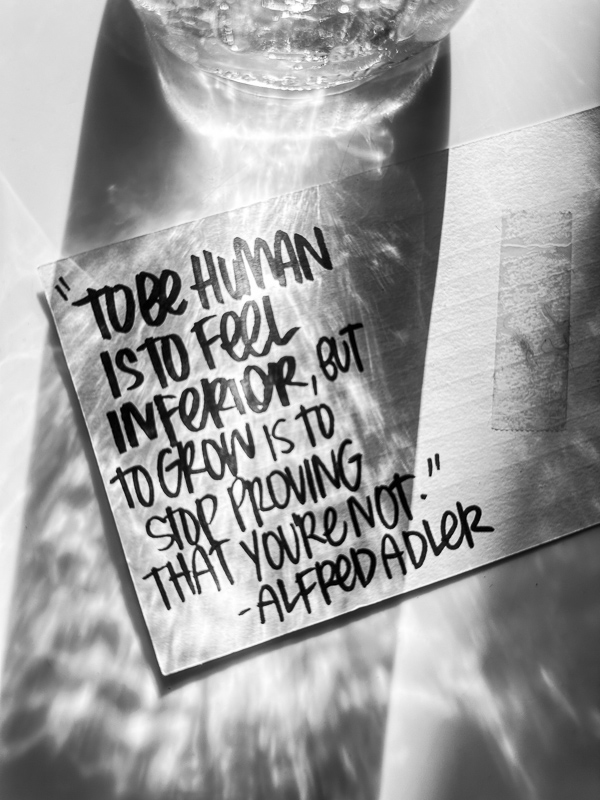 "TO BE HUMAN
IS TO FEEL
INFERIOR, BUT
TO GROW IS TO
STOP PROVING
THAT YOU'RE NOT."
-ALFRED ADLER